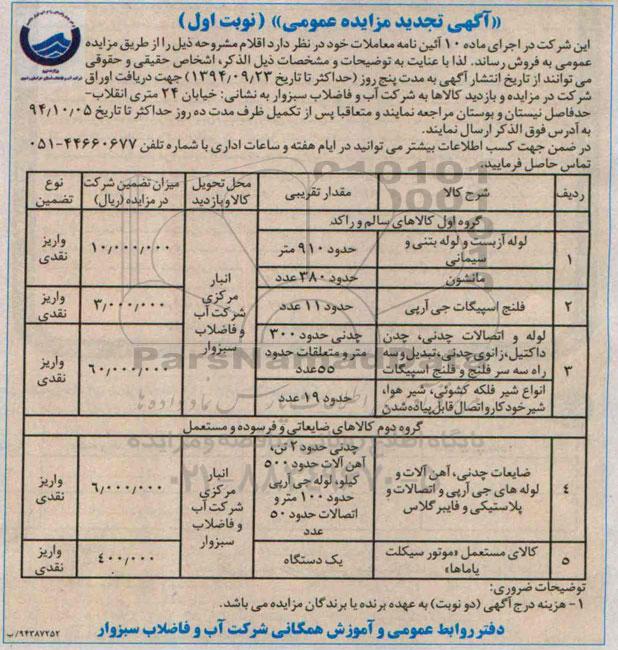 «آگهی تجدید مزایده عمومی» (نوبت اول)
این شرکت در اجرای ماده ۱۰ آئین نامه معاملات خود در نظر دارد اقلام مشروحه ذیل را از طریق مزایده
عمومی به فروش رساند. لذا با عنایت به توضیحات و مشخصات ذیل الذکر، اشخاص حقیقی و حقوقی
می توانند از تاریخ انتشار آگهی به مدت پنج روز (حداکثر تا تاریخ ۱۳۹۴/۰۹/۲۳) جهت دریافت اوراق
شرکت در مزایده و بازدید کالاها به شرکت آب و فاضلاب سبزوار به نشانی: خیابان ۲۴ متری انقلاب-
حدفاصل نیستان و بوستان مراجعه نمایند و متعاقبا پس از تکمیل ظرف مدت ده روز حداکثر تا تاریخ ۹۴/۱۰/۰۵
به آدرس فوق الذکر ارسال نمایند.
در ضمن جهت کسب اطلاعات بیشتر می توانید در ایام هفته و ساعات اداری با شماره تلفن ۴۴۶۶۰۶۷۷-۰۵۱
تماس حاصل فرمایید.
ردیف شرح کالا مقدار تقریبی محل تحویل کالا و بازدید میزان تضمین شرکت در مزایده (ریال) نوع تضمین
گروه اول کالاهای سالم و راکد
۱ لوله آزبست و لوله بتنی و سیمانی حدود ۹۱۰ متر انبار مرکزی شرکت آب و فاضلاب سبزوار ۱۰/۰۰۰/۰۰۰ واریز نقدی
مانشون حدود ۳۸۰ عدد
۲ فلنج اسپیگات جی آرپی حدود ۱۱ عدد ۳/۰۰۰/۰۰۰ واریز نقدی
۳ لوله و اتصالات چدنی، چدن داکتیل، زانوی چدنی، تبدیل و سه راه سه سر فلنج و فلنج اسپیگات چدنی حدود ۳۰۰ متر و متعلقات حدود ۵۵ عدد ۶۰/۰۰۰/۰۰۰ واریز نقدی
انواع شیر فلکه کشوئی، شیر هوا، شیر خودکار و اتصال قابل پیاده شدن حدود ۱۹ عدد
گروه دوم کالاهای ضایعاتی و فرسوده و مستعمل
۴ ضایعات چدنی، آهن آلات و لوله های جی آرپی و اتصالات و پلاستیکی و فایبر گلاس چدنی حدود ۲ تن، آهن آلات حدود ۵۰۰ کیلو، لوله جی آرپی حدود ۱۰۰ متر و اتصالات حدود ۵۰ عدد انبار مرکزی شرکت آب و فاضلاب سبزوار ۶/۰۰۰/۰۰۰ واریز نقدی
۵ کالای مستعمل «موتور سیکلت یاماها» یک دستگاه ۴۰۰/۰۰۰ واریز نقدی
توضیحات ضروری:
۱- هزینه درج آگهی (دو نوبت) به عهده برنده یا برندگان مزایده می باشد.
دفتر روابط عمومی و آموزش همگانی شرکت آب و فاضلاب سبزوار
۹۴۳۸۷۲۵۲/ب